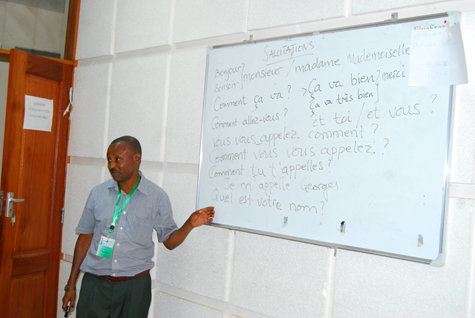 SALUTATIONS
Bonjour?
Bonjour monsieur / madame Mademoiselle
Comment ça va? → Ça va bien / merci
Ça a très bien
Comment allez-vous? et toi / et vous?
Vous vous appelez comment?
Comment vous vous appelez?
Comment tu t'appelles?
Je m'appelle Georges
Quel est votre nom?